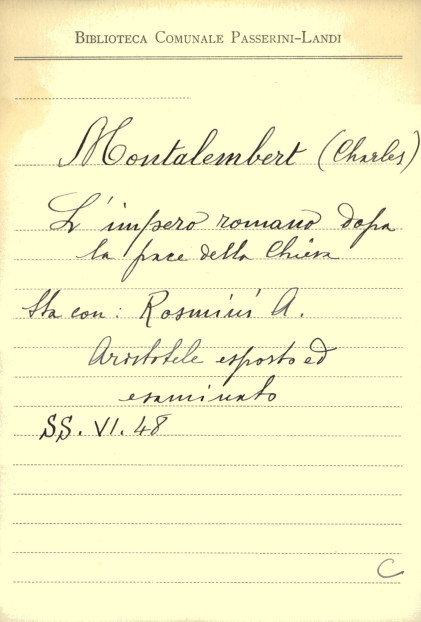 BIBLIOTECA COMUNALE PASSERINI-LANDI
Montalembert (Charles)
L'impero romano dopo
la pace della Chiesa
Sta con: Rosmini A.
Aristotele esposto ed
esaminato
SS. VI. 48
C